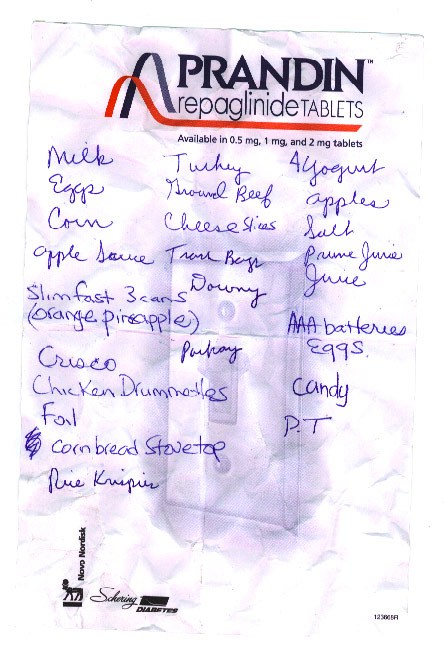 PRANDIN™
repaglinide TABLETS
Available in 0.5 mg, 1 mg, and 2 mg tablets
Milk
Eggs
Corn
apple Sauce
Slimfast 3 cans
(orange pineapple)
Crisco
Chicken Drummettes
Foil
cornbread Stovetop
Rice Krispis
Turkey
Ground Beef
Cheese Slices
Trash Bags
Downy
Parkay
4 Yogurt
apples
Salt
Prune Juice
Juice
AAA batteries
EGGS.
Candy
P.T
Novo Nordisk
Schering
DIABETES
123668R